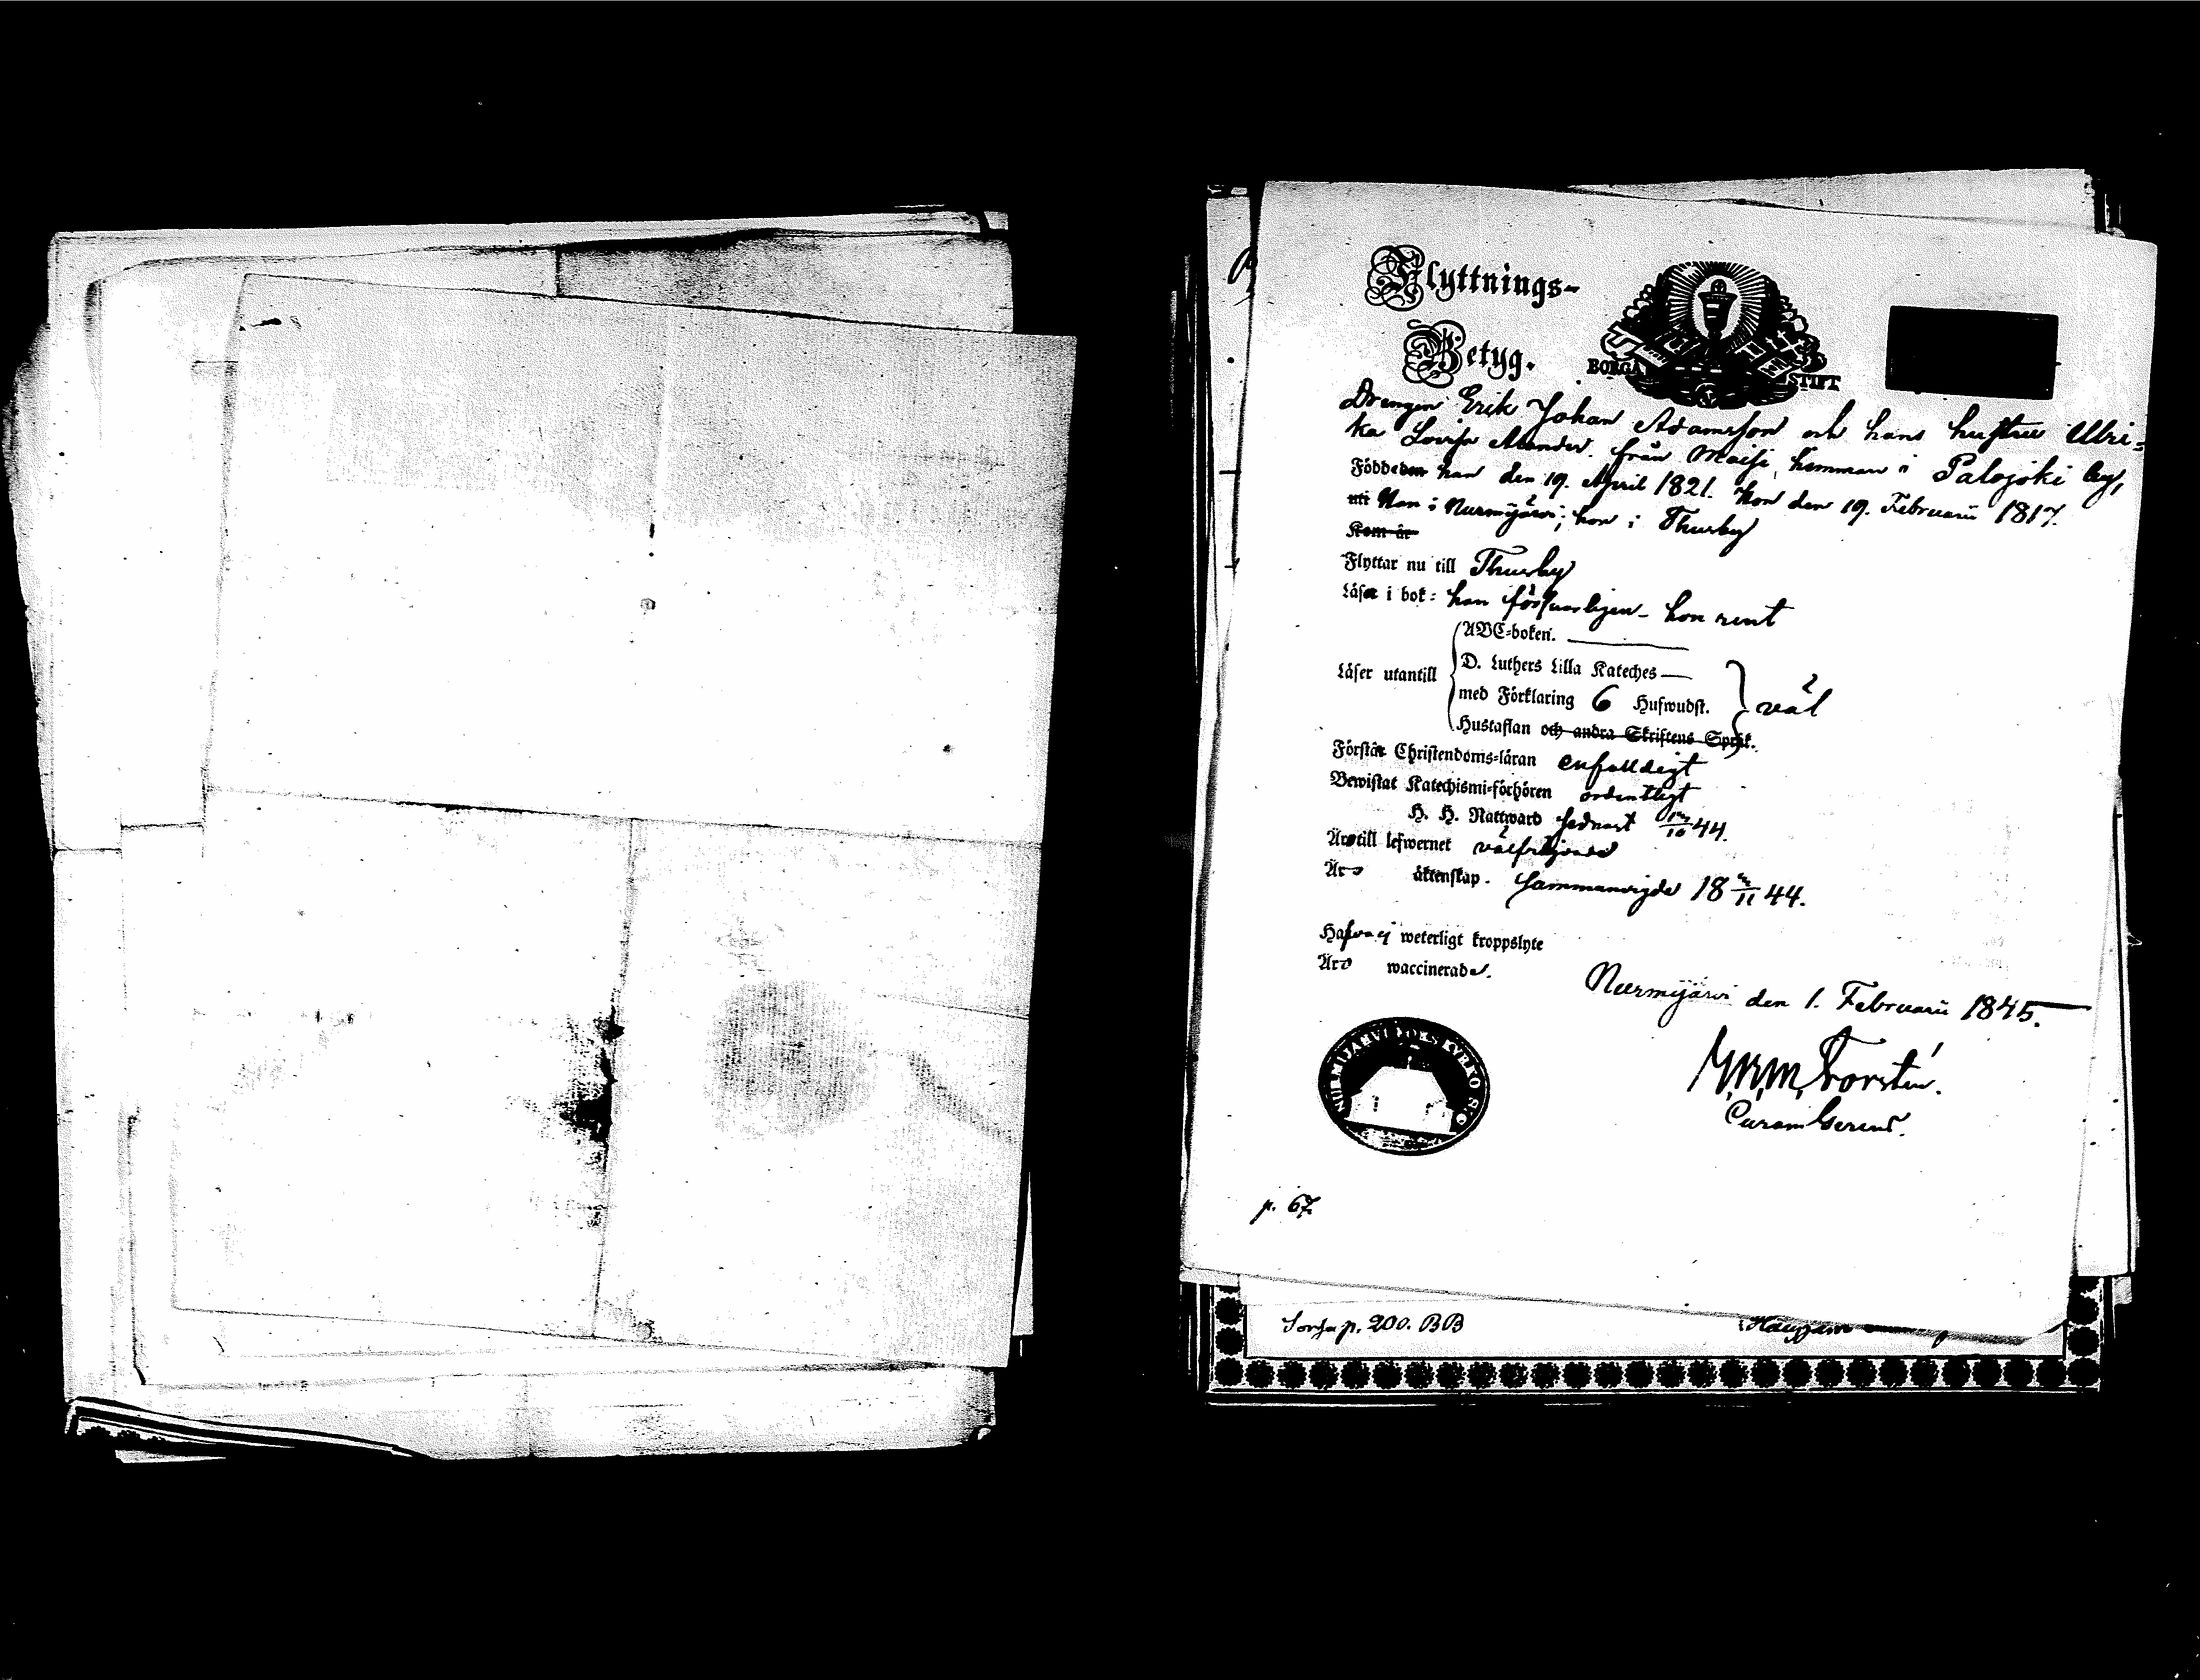 Flyttnings-
Betyg.
BORGÅ STIFT
Drengen Erik Johan Adamsson och hans hustru Ulri=
ka Lovisa från Maisi hemman i Palojoki by,
Födde den han den 19. April 1821. hon den 19. Februarii 1817.
uti Han i Nurmijärvi; hon i Thusby
Kom år
Flyttar nu till Thusby
Läser i bok: han försvarligen - hon rent
ABC-boken.
Läser utantill
D. Luthers Lilla Kateches
med Förklaring 6 Hufwudst.
Hustaflan och andra Skriftens Språk.
väl
Förstår Christendoms-läran enfaldigt
Bewistat Katechismi-förhören ordentligt
H. H. Nattward sednast 10 44.
Äro till lefwernet välfrejdade
Äro äktenskap. Sammanvigde 18 11 44.
Hafva ej weterligt kroppslyte
Äro waccinerade.
Nurmijärvi den 1. Februarii 1845.
Forstén.
NURMIJÄRVI KYRKO
p. 67.
p. 200. BB